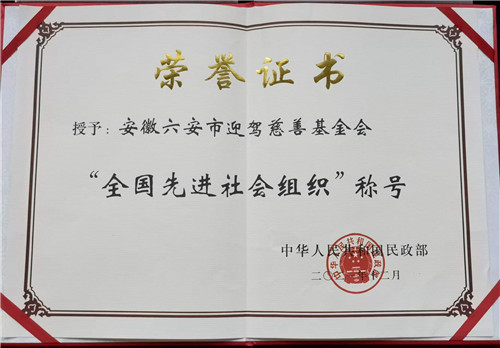 荣誉证书
授予：安徽六安市迎驾慈善基金会
“全国先进社会组织”称号
中华人民共和国民政部
二〇二 年十二月